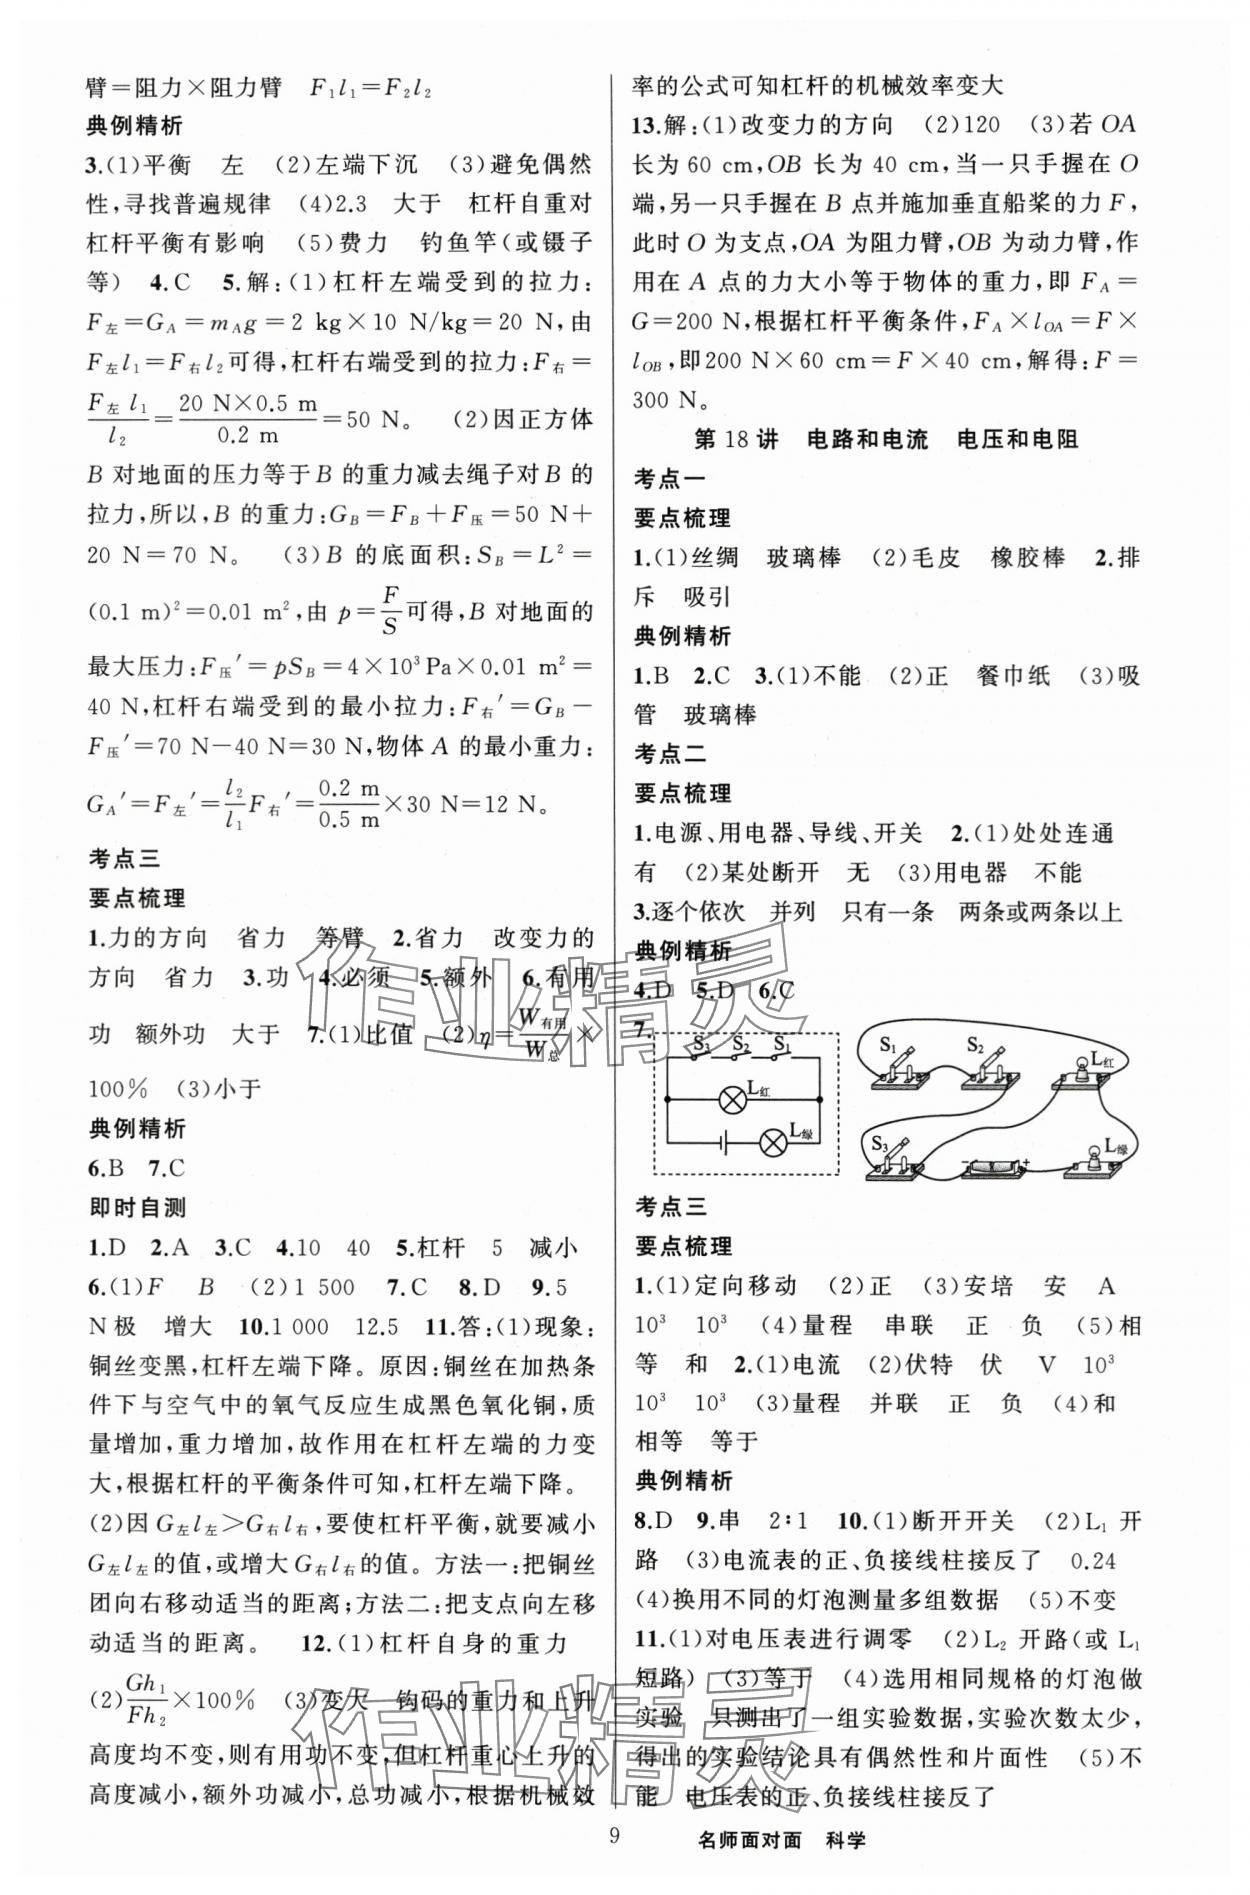 臂=阻力×阻力臂 F₁l₁=F₂l₂
典例精析
3.(1)平衡 左 (2)左端下沉 (3)避免偶然
性,寻找普遍规律 (4)2.3 大于 杠杆自重对
杠杆平衡有影响 (5)费力 钓鱼竿(或镊子
等) 4.C 5.解:(1)杠杆左端受到的拉力:
F左=GA=mAg=2 kg×10 N/kg=20 N,由
F左l₁=F右l₂可得,杠杆右端受到的拉力:F右=
F左 l₁/l₂=20 N×0.5 m/0.2 m=50 N。 (2)因正方体
B 对地面的压力等于 B 的重力减去绳子对 B 的
拉力,所以,B 的重力:GB=FB+F压=50 N+
20 N=70 N。 (3)B 的底面积:SB=L²=
(0.1 m)²=0.01 m²,由 p=F/S可得,B 对地面的
最大压力:F压′=pSB=4×10³Pa×0.01 m²=
40 N,杠杆右端受到的最小拉力:F右′=GB-
F压′=70 N-40 N=30 N,物体 A 的最小重力:
GA′=F左′=l₂/l₁F右′=0.2 m/0.5 m×30 N=12 N。
考点三
要点梳理
1.力的方向 省力 等臂 2.省力 改变力的
方向 省力 3.功 4.必须 5.额外 6.有用
功 额外功 大于 7.(1)比值 (2)η=W有用/W总×
100% (3)小于
典例精析
6.B 7.C
即时自测
1.D 2.A 3.C 4.10 40 5.杠杆 5 减小
6.(1)F B (2)1 500 7.C 8.D 9.5
N极 增大 10.1 000 12.5 11.答:(1)现象:
铜丝变黑,杠杆左端下降。原因:铜丝在加热条
件下与空气中的氧气反应生成黑色氧化铜,质
量增加,重力增加,故作用在杠杆左端的力变
大,根据杠杆的平衡条件可知,杠杆左端下降。
(2)因 G左l左>G右l右,要使杠杆平衡,就要减小
G左l左的值,或增大 G右l右的值。方法一:把铜丝
团向右移动适当的距离;方法二:把支点向左移
动适当的距离。 12.(1)杠杆自身的重力
(2)Gh₁/Fh₂×100% (3)变大 钩码的重力和上升
高度均不变,则有用功不变,但杠杆重心上升的
高度减小,额外功减小,总功减小,根据机械效
率的公式可知杠杆的机械效率变大
13.解:(1)改变力的方向 (2)120 (3)若 OA
长为 60 cm,OB 长为 40 cm,当一只手握在 O
端,另一只手握在 B 点并施加垂直船桨的力 F,
此时 O 为支点,OA 为阻力臂,OB 为动力臂,作
用在 A 点的力大小等于物体的重力,即 FA=
G=200 N,根据杠杆平衡条件,FA×lOA=F×
lOB,即200 N×60 cm=F×40 cm,解得:F=
300 N。
第 18 讲 电路和电流 电压和电阻
考点一
要点梳理
1.(1)丝绸 玻璃棒 (2)毛皮 橡胶棒 2.排
斥 吸引
典例精析
1.B 2.C 3.(1)不能 (2)正 餐巾纸 (3)吸
管 玻璃棒
考点二
要点梳理
1.电源、用电器、导线、开关 2.(1)处处连通
有 (2)某处断开 无 (3)用电器 不能
3.逐个依次 并列 只有一条 两条或两条以上
典例精析
4.D 5.D 6.C
7. S₃ S₂ S₁ L红 L绿 S₁ S₂ L红 S₃ - + L绿
考点三
要点梳理
1.(1)定向移动 (2)正 (3)安培 安 A
10³ 10³ (4)量程 串联 正 负 (5)相
等 和 2.(1)电流 (2)伏特 伏 V 10³
10³ 10³ (3)量程 并联 正 负 (4)和
相等 等于
典例精析
8.D 9.串 2∶1 10.(1)断开开关 (2)L₁ 开
路 (3)电流表的正、负接线柱接反了 0.24
(4)换用不同的灯泡测量多组数据 (5)不变
11.(1)对电压表进行调零 (2)L₂ 开路(或 L₁
短路) (3)等于 (4)选用相同规格的灯泡做
实验 只测出了一组实验数据,实验次数太少,
得出的实验结论具有偶然性和片面性 (5)不
能 电压表的正、负接线柱接反了
作业精灵
作业精灵
9
名师面对面 科学